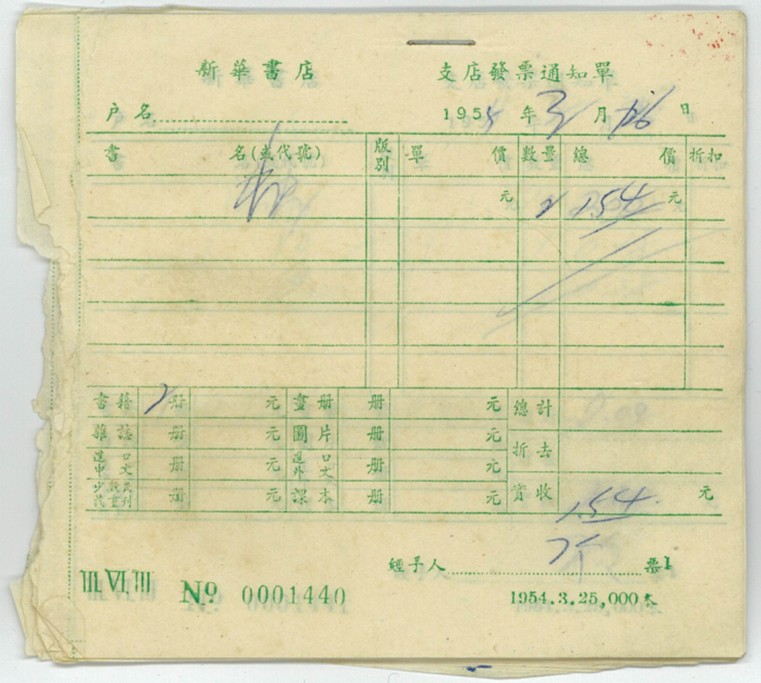 新華書店 支店發票通知單
户名 1955年3月 日
書 名(或代號) 版別 單 價 數量 總 價 折扣
元 2 1.54 元
書籍 2 册 元 畫册 册 元 總計
雜誌 册 元 圖片 册 元 折去
進口中文 册 元 進口外文 册 元
册 元 課本 册 元 實收 1.54 元
經手人 票1
№ 0001440 1954.3.25,000本